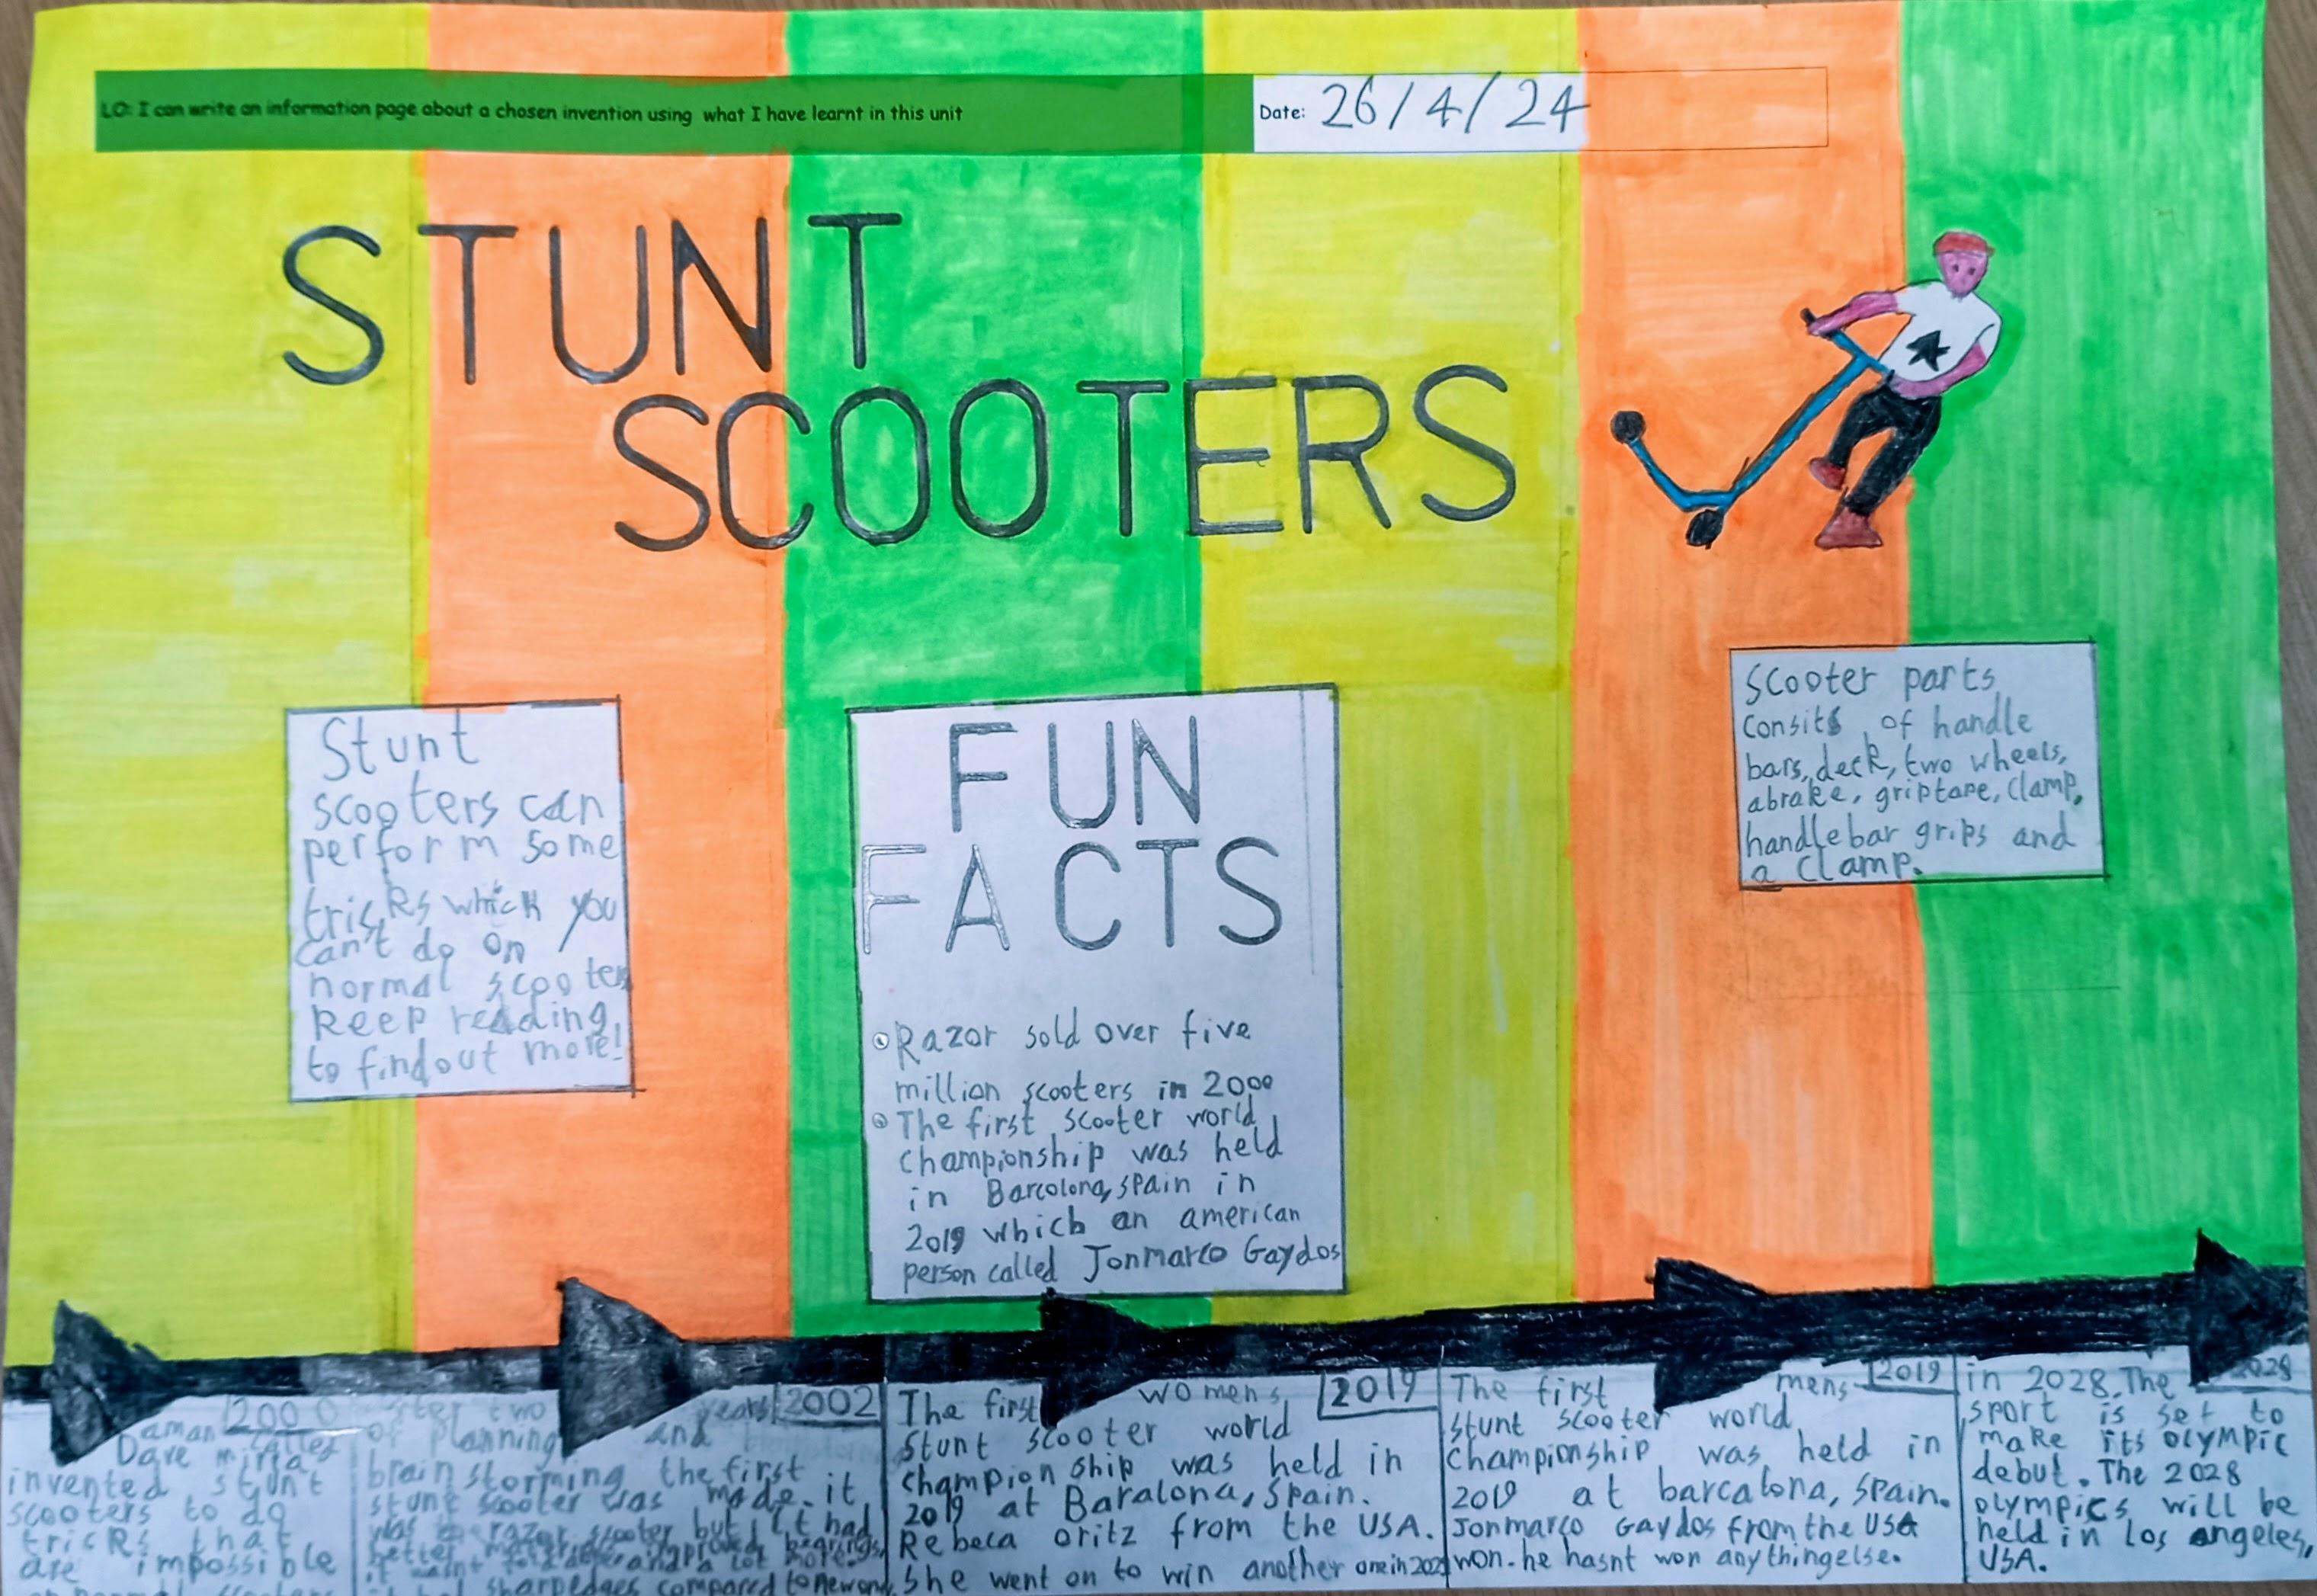 LO: I can write an information page about a chosen invention using what I have learnt in this unit
Date: 26/4/24
STUNT
SCOOTERS
Stunt
scooters can
perform some
tricks which you
can't do on
normal scooters
Keep reading
to findout more!
FUN
FACTS
Razor sold over five
million scooters in 2000
The first scooter world
championship was held
in Barcolona, spain in
2019 which an american
person called Jonmarco Gaydos
Scooter parts
consits of handle
bars, deck, two wheels,
abrake, griptape, clamp,
handlebar grips and
a clamp.
2000
aman called
Dave mirra
invented stunt
scooters to do
tricks that
are impossible
2002
two years
of planning and
brainstorming the first
stunt scooter was made. it
was razor scooter but it had
better
sharpedges compared to
2019
The first womens
stunt scooter world
championship was held in
2019 at Baralona, spain.
Rebeca oritz from the USA.
She went on to win another one in
2019
The first mens
stunt scooter world
championship was held in
2019 at barcalona, spain.
Jonmarco Gaydos from the USA
won. he hasnt won anythingelse.
2028
in 2028. The
sport is set to
make its olympic
debut. The 2028
olympics will be
held in los angeles,
USA.